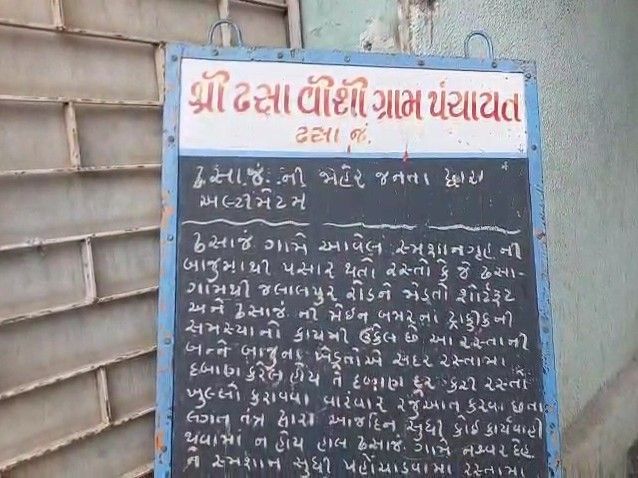 શ્રી ઢસા વીશી ગ્રામ પંચાયત
ઢસા જં.
ઢસાજં. ની જાહેર જનતા દ્વારા
અલ્ટીમેટમ
ઢસાજં ગામે આવેલ સ્મશાનગૃહ ની
બાજુમાથી પસાર થતો રસ્તો કે જે ઢસા-
ગામથી જલાલપુર રોડને જોડતો શોર્ટરૂટ
અને ઢસાજં ની મેઇન બજારનાં ટ્રાફીકની
સમસ્યાનો કાયમી ઉકેલ છે આ રસ્તાની
બન્ને બાજુના ખેડુતોએ સદર રસ્તામા
દબાણ કરેલ હોય તે દબાણ દુર કરી રસ્તો
ખુલ્લો કરાવવા વારંવાર રજુઆત કરવા છતા
લગત તંત્ર દ્વારા આજદિન સુધી કોઇ કાર્યવાહી
થવામાં ન હોય હાલ ઢસાજં ગામે નશ્વર દેહ
ને સ્મશાન સુધી પહોંચાડવામા રસ્તામા